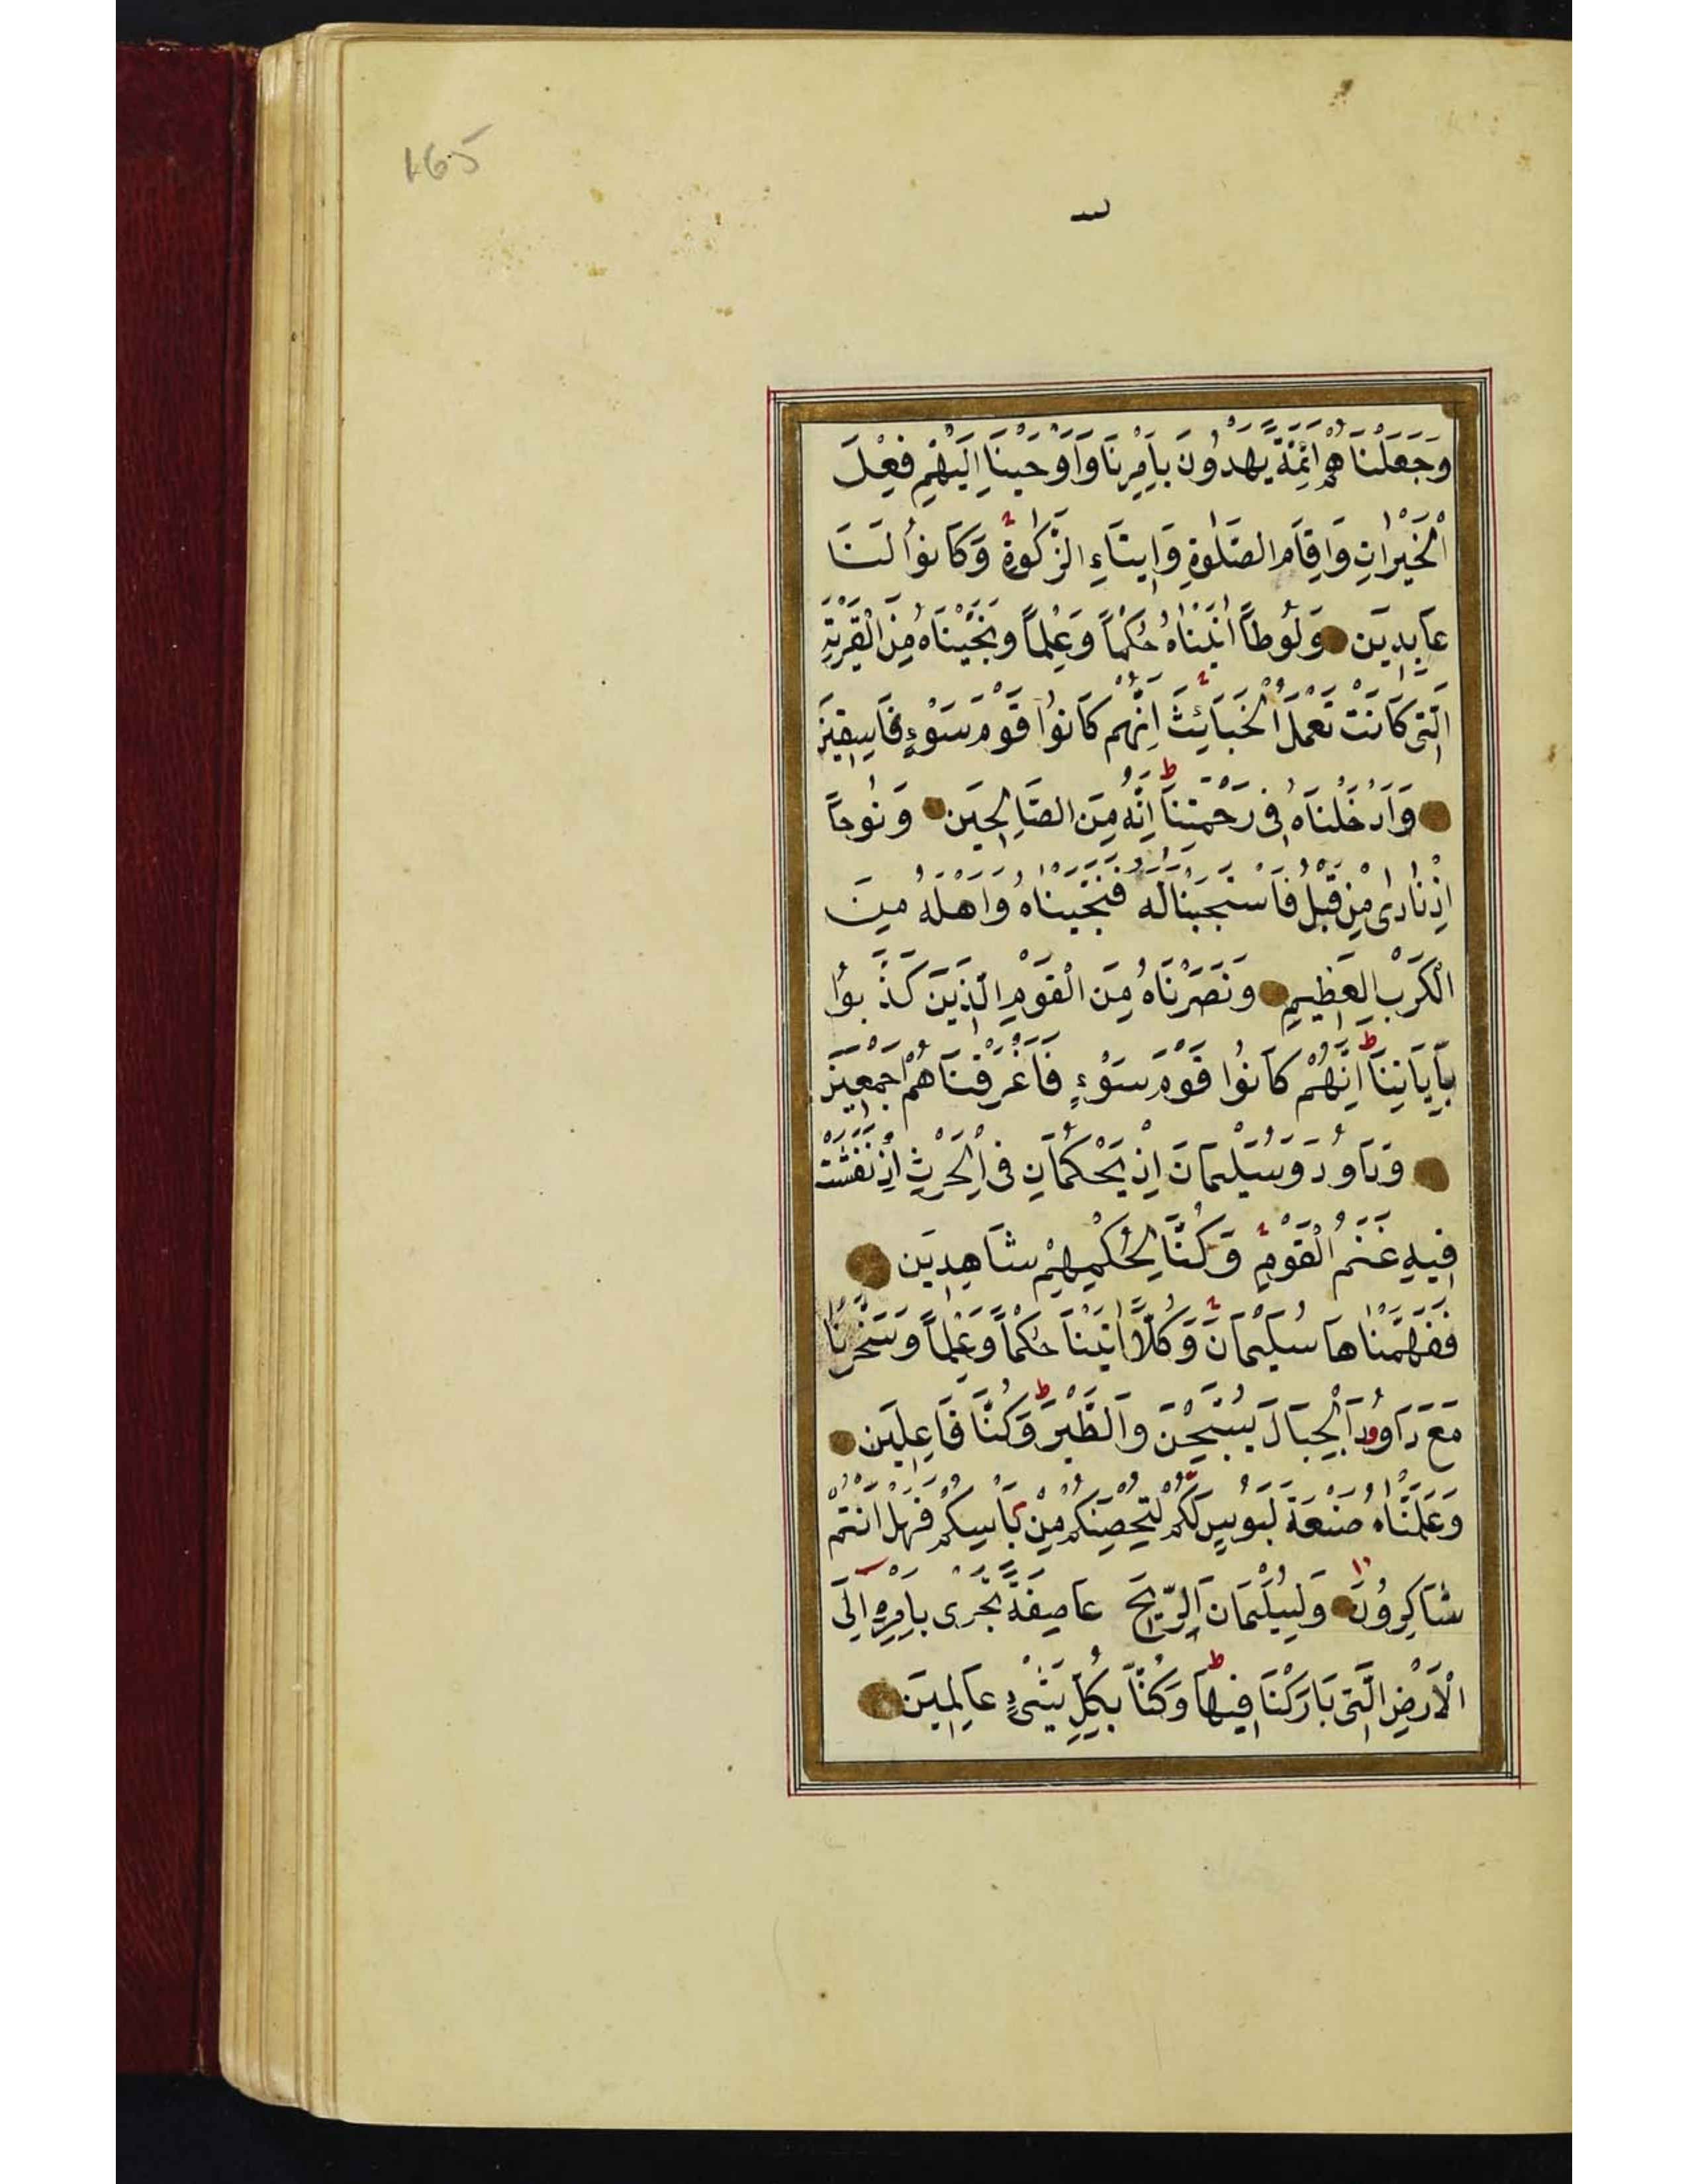 165
وَجَعَلْنَاهُمْ اَئِمَّةً يَهْدُونَ بِاَمْرِنَا وَاَوْحَيْنَا اِلَيْهِمْ فِعْلَ
الْخَيْرَاتِ وَاِقَامَ الصَّلٰوةِ وَاِيتَاءِ الزَّكٰوةِ وَكَانُوا لَنَا
عَابِدِيَن وَلُوطاً اٰتَيْنَاهُ حُكْماً وَعِلْماً وَنَجَّيْنَاهُ مِنَ الْقَرْيَةِ
الَّتِى كَانَتْ تَعْمَلُ الْخَبَائِثَ اِنَّهُمْ كَانُوا قَوْمَ سَوْءٍ فَاسِقِيَن
وَاَدْخَلْنَاهُ فِى رَحْمَتِنَا اِنَّهُ مِنَ الصَّالِحِيَن وَنُوحاً
اِذْ نَادٰى مِنْ قَبْلُ فَاسْتَجَبْنَا لَهُ فَنَجَّيْنَاهُ وَاَهْلَهُ مِنَ
الْكَرْبِ الْعَظِيمِ وَنَصَرْنَاهُ مِنَ الْقَوْمِ الَّذِيَن كَذَّبُوا
بِاٰيَاتِنَا اِنَّهُمْ كَانُوا قَوْمَ سَوْءٍ فَاَغْرَقْنَاهُمْ اَجْمَعِيَن
وَدَاوُدَ وَسُلَيْمَانَ اِذْ يَحْكُمَانِ فِى الْحَرْثِ اِذْ نَفَشَتْ
فِيهِ غَنَمُ الْقَوْمِ وَكُنَّا لِحُكْمِهِمْ شَاهِدِيَن
فَفَهَّمْنَاهَا سُلَيْمَانَ وَكُلّاً اٰتَيْنَا حُكْماً وَعِلْماً وَسَخَّرْنَا
مَعَ دَاوُدَ الْجِبَالَ يُسَبِّحْنَ وَالطَّيْرَ وَكُنَّا فَاعِلِيَن
وَعَلَّمْنَاهُ صَنْعَةَ لَبُوسٍ لَكُمْ لِتُحْصِنَكُمْ مِنْ بَأْسِكُمْ فَهَلْ اَنْتُمْ
شَاكِرُونَ وَلِسُلَيْمَانَ الرِّيحَ عَاصِفَةً تَجْرِى بِاَمْرِهِ اِلَى
الْاَرْضِ الَّتِى بَارَكْنَا فِيهَا وَكُنَّا بِكُلِّ شَىْءٍ عَالِمِيَن